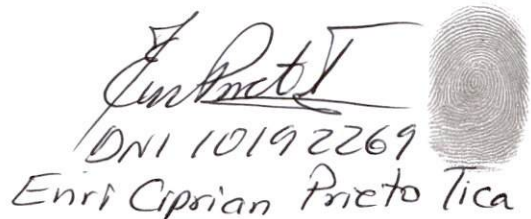 DNI 10192269
Enri Ciprian Prieto Tica